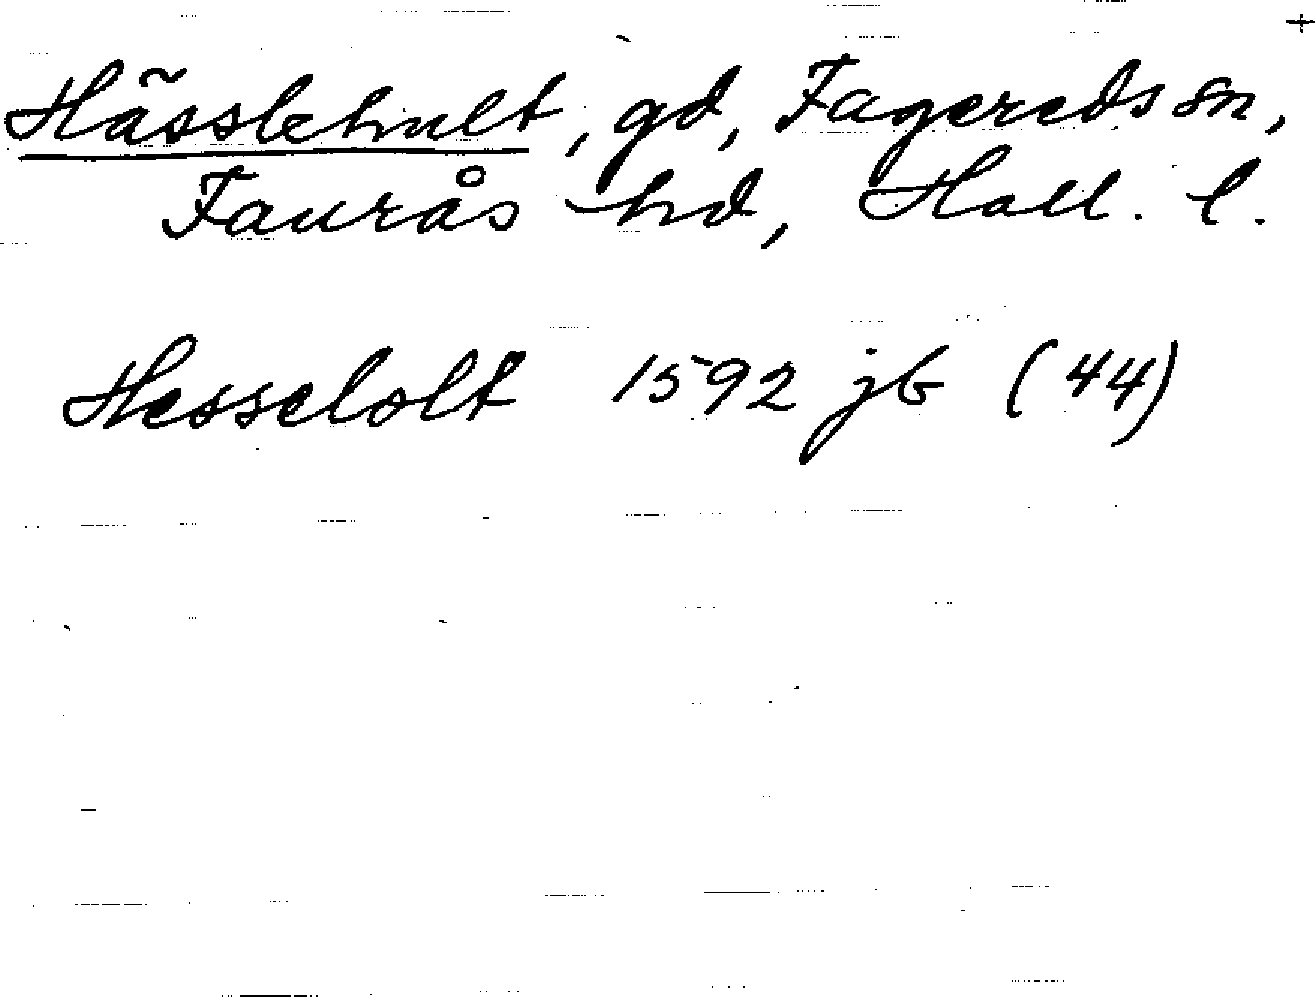 +
Hässlehult, gd, Fagereds sn,
Faurås hd, Hall. l.
Hesselolt 1592 jb (44)